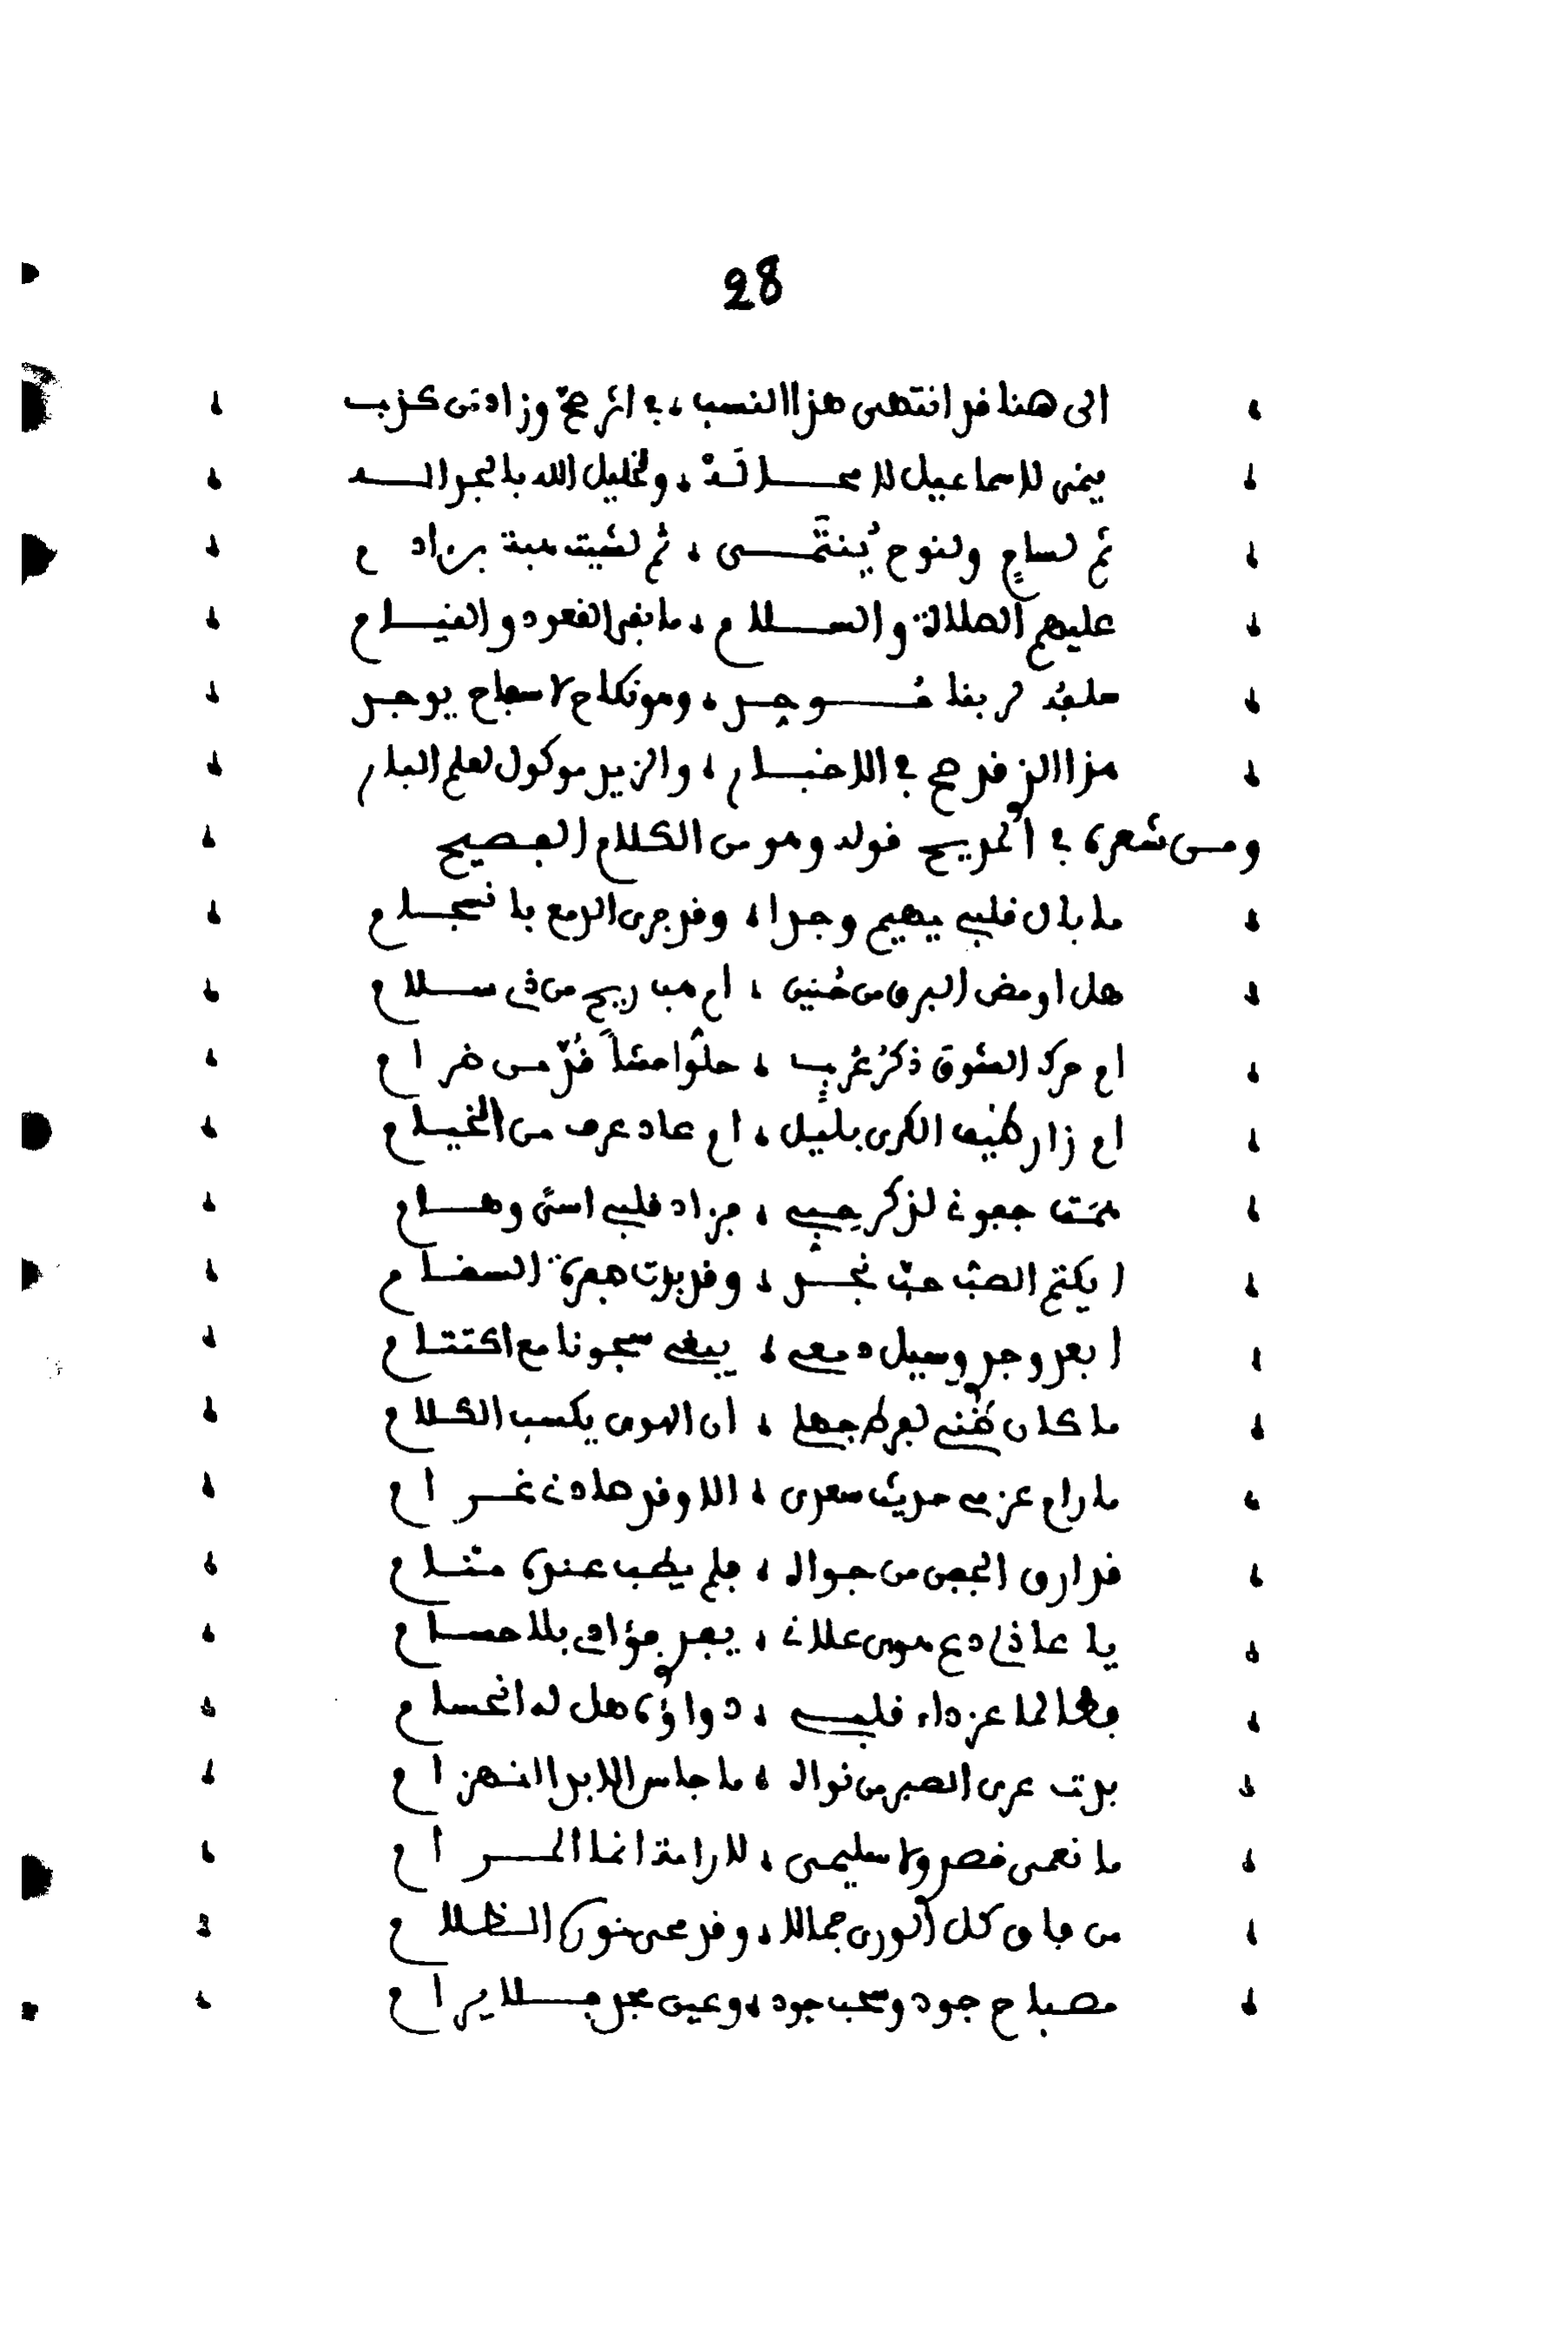 28
الى هنا قد انتهى هذا النسب، في اثر صحّ وزاد من كذب
ينمى لاسماعيل لا محـــالة، وللخليل الله بالجد الـــه
ثم لسام ولنوح يُنتَمـــى، ثم لشيت هبة بن ادم
عليهم الصلاة والســـلام، ما بقي القعود والقيـــام
ربنا مُـــوجد، وهو نكاح لا سفاح يوجد
هذا الذي قد صح في الاخبـــار، والزيد موكول لعلم البار
ومـن شعره في المديح قوله وهو من الكلام الفصيح
ما بال قلبي يهيم وجدا، وقد جرى الدمع بانسجـــام
هل اومض البرق من حُنين، ام هب ريح من ذي ســـلام
ام حرك الشوق ذكرُ عُربٍ، حلّوا حشاً قُدّ مـن غرام
ام زار طيف الكرى بليل، ام عاد عرف من الخيـــام
همت جفوني لذكر حِبي، فزاد قلبي اسىً وهـــام
ايكتم الصبّ حبّ نجـــد، وقد بدت هجرة السقـــام
ابعد وجد وسيل دمعي، يبغي سجونا مع اكتتـــام
ما كان ظني لفرط جهلي، ان الهوى يكسب الكلام
ما رام عزمي حديث سعدى، الا وقد هادني غـــرام
قد ارق الجفن من جواك، فلم يطب عندي منـــام
يا عاذلي دع هوى علاني، يفد فؤادي بلا حســـام
فطالما عز داء قلبـــي، دواؤه هل له انحسام
بدت عرى الصبر من نواك، ما جاس الا بدا انهزام
ما نعمى قصدي ولا سليمى، لا رامة انما المـــرام
من فاق كل الورى جمالا، وقد محى نوره الظـــلام
مصباح جود وسحب جود، وعين مجد فـــلا يرام